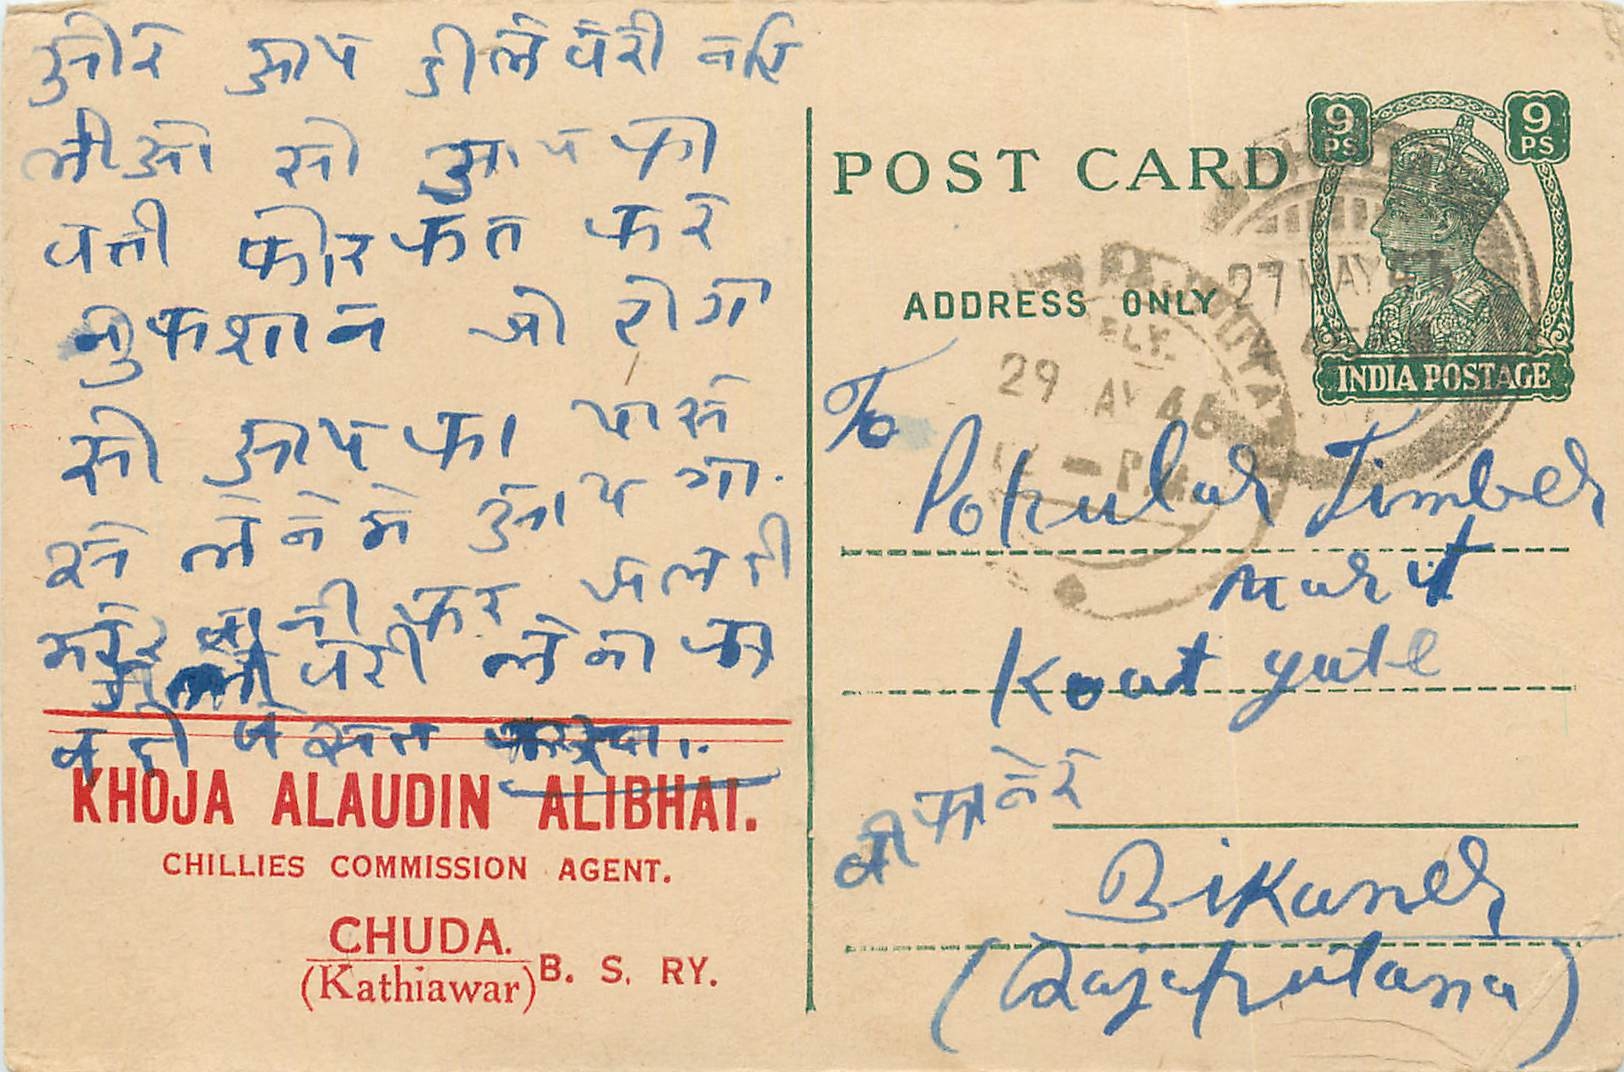 और आप डीलेवेरी नहि
लीओ सो आप का
वती फोरकत करे
नुकशान जो होगा
सो आप का पास
से लेने मे आयगा.
कर जलदी
वेरी लेना का
POST CARD
9 PS
9 PS
INDIA POSTAGE
ADDRESS ONLY
27 MAY
29 AY 46
To
Popular Timber
Mart
Koat gate
बीकानेर
Bikaner
(Rajaputana)
KHOJA ALAUDIN ALIBHAI.
CHILLIES COMMISSION AGENT.
CHUDA.
(Kathiawar) B. S. RY.